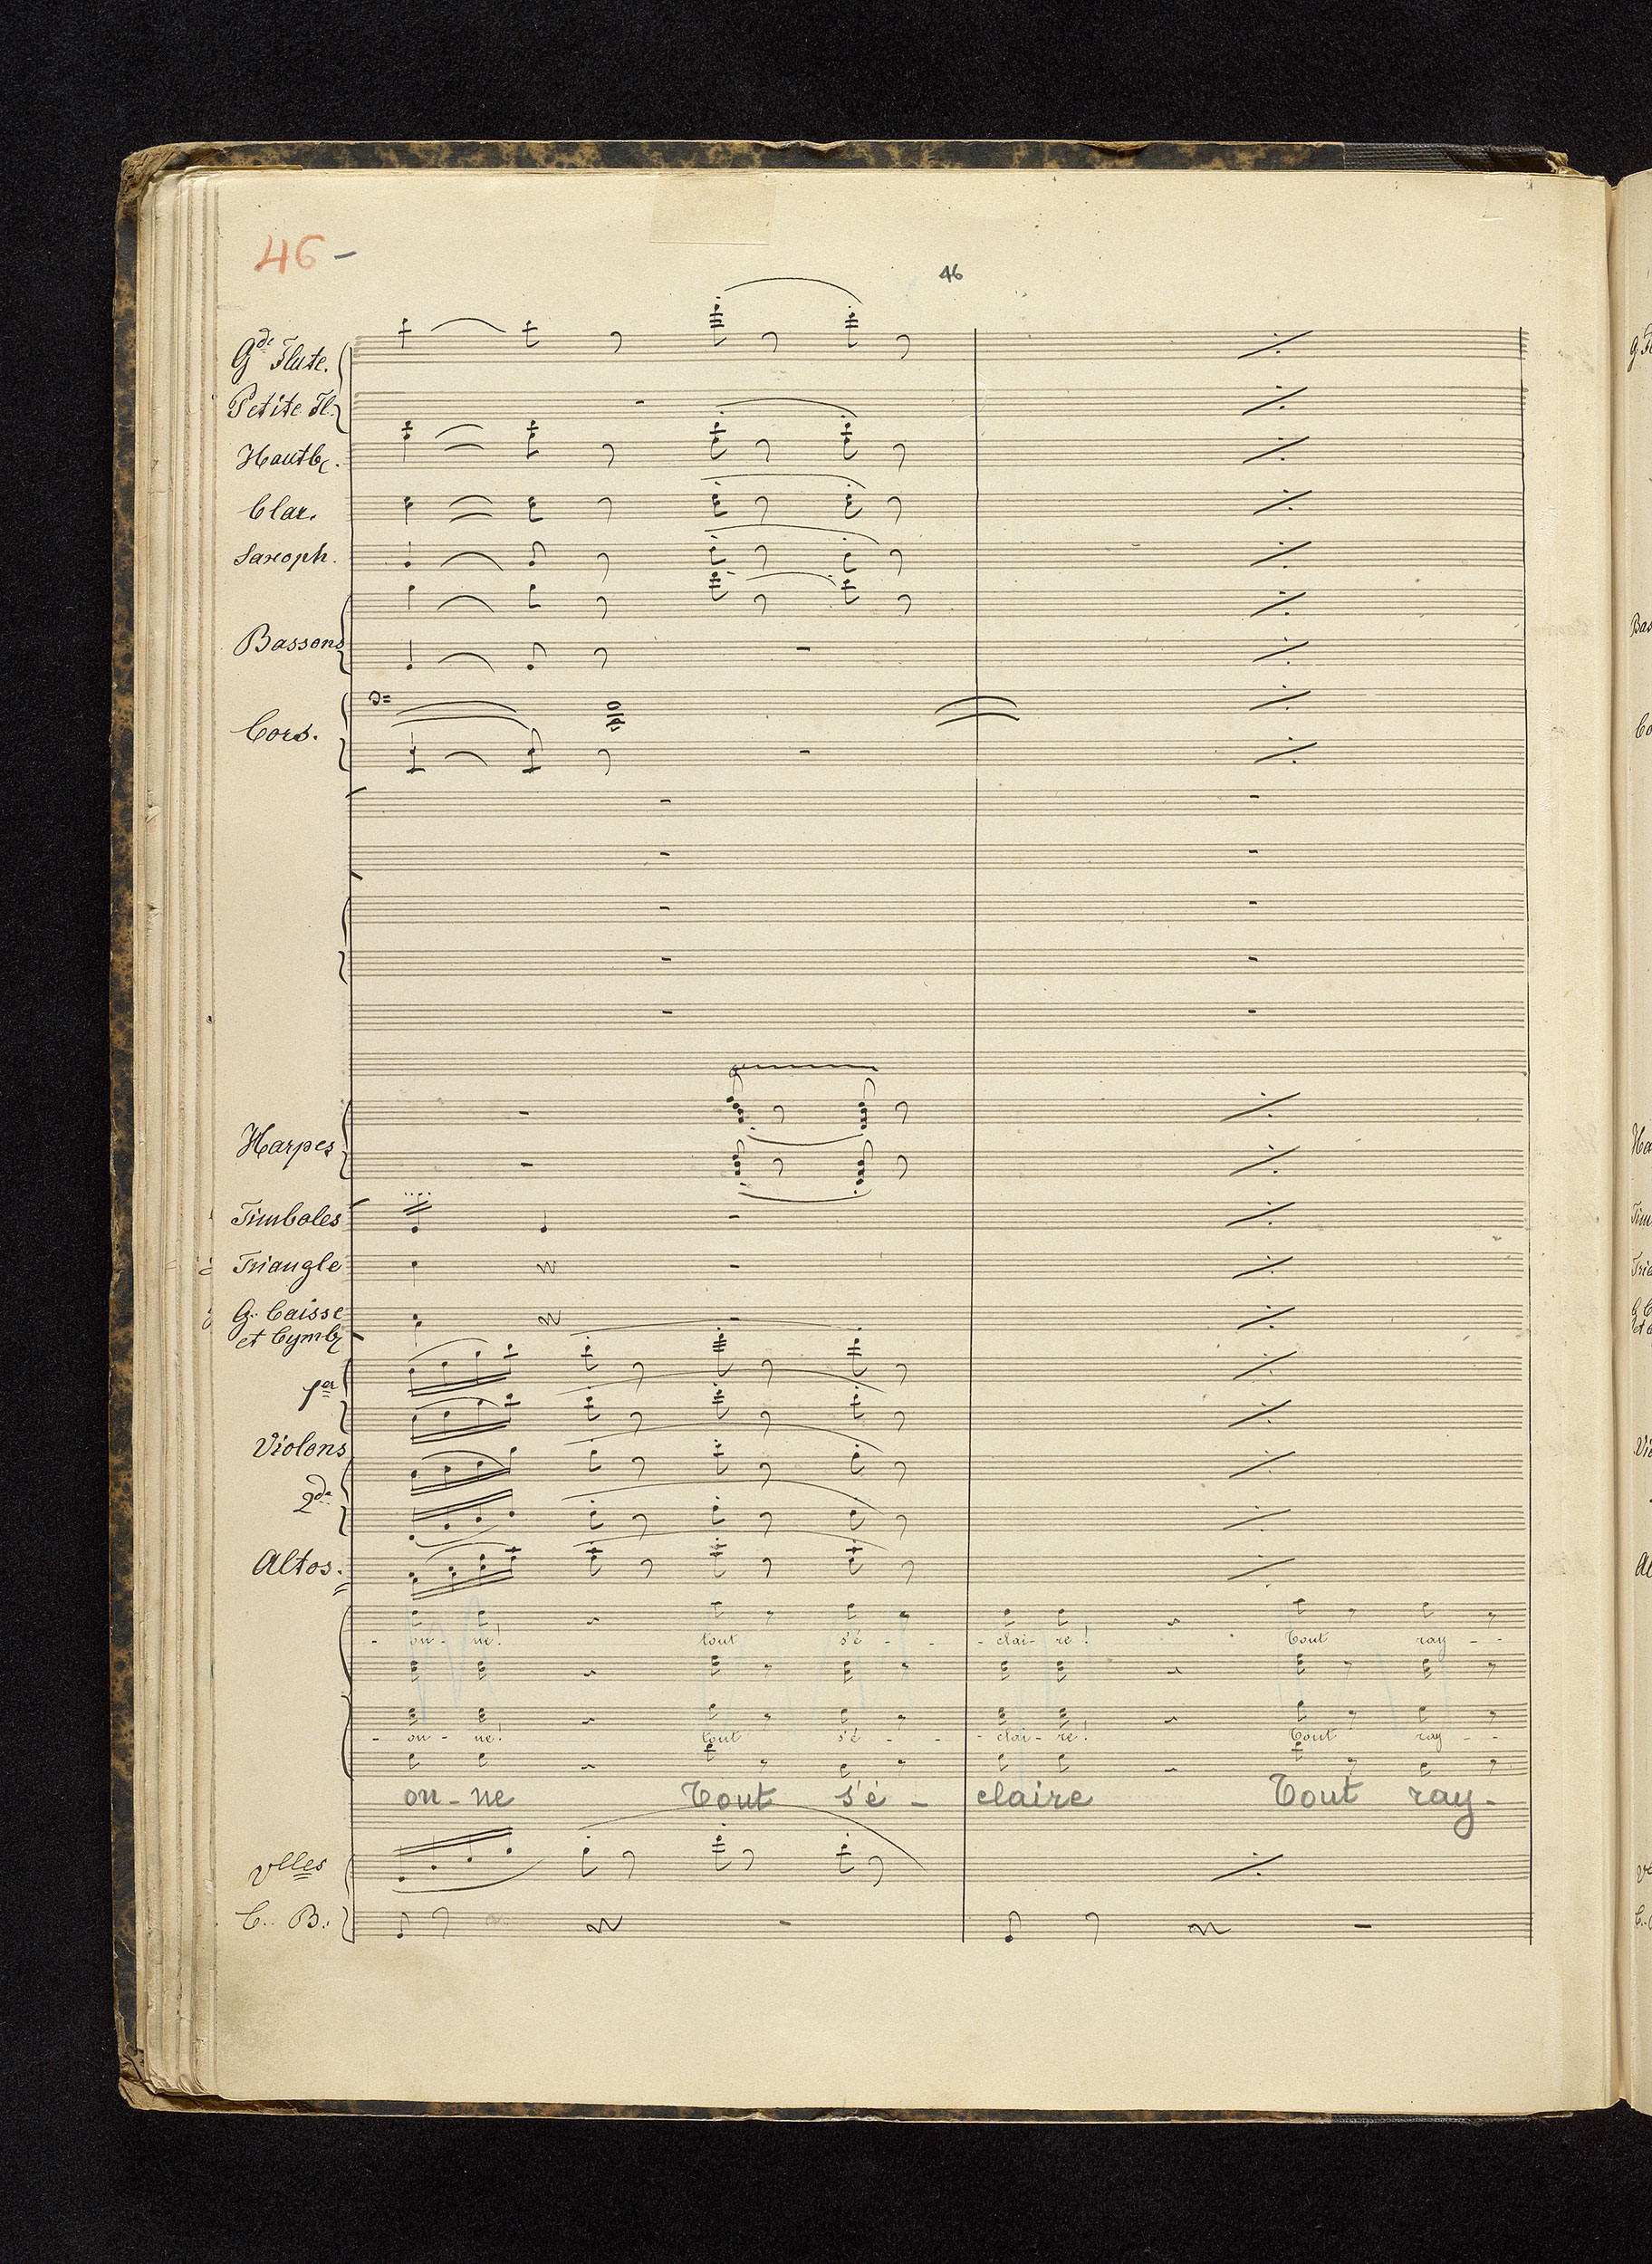 46-
46
Gde Flute.
Petite Fl.
Hautb.
Clar.
Saxoph.
Bassons
Cors.
Harpes
Timbales
Triangle
G. Caisse
et Cymb
1er
Violons
2d
Altos.
- on - ne! tout s'é - - - clai - re! Tout ray - -
- on - ne! tout s'é - - - clai - re! Tout ray - -
on - ne Tout s'é - claire Tout ray -
Vlles
C. B.